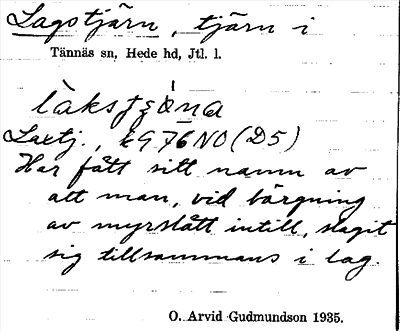 Lagstjärn, tjärn i
Tännäs sn, Hede hd, Jtl. l.
Laxtj., k976NO (D5)
Har fått sitt namn av
att man, vid bärgning
av myrslått intill, slagit
sig tillsammans i lag.
O. Arvid Gudmundson 1935.